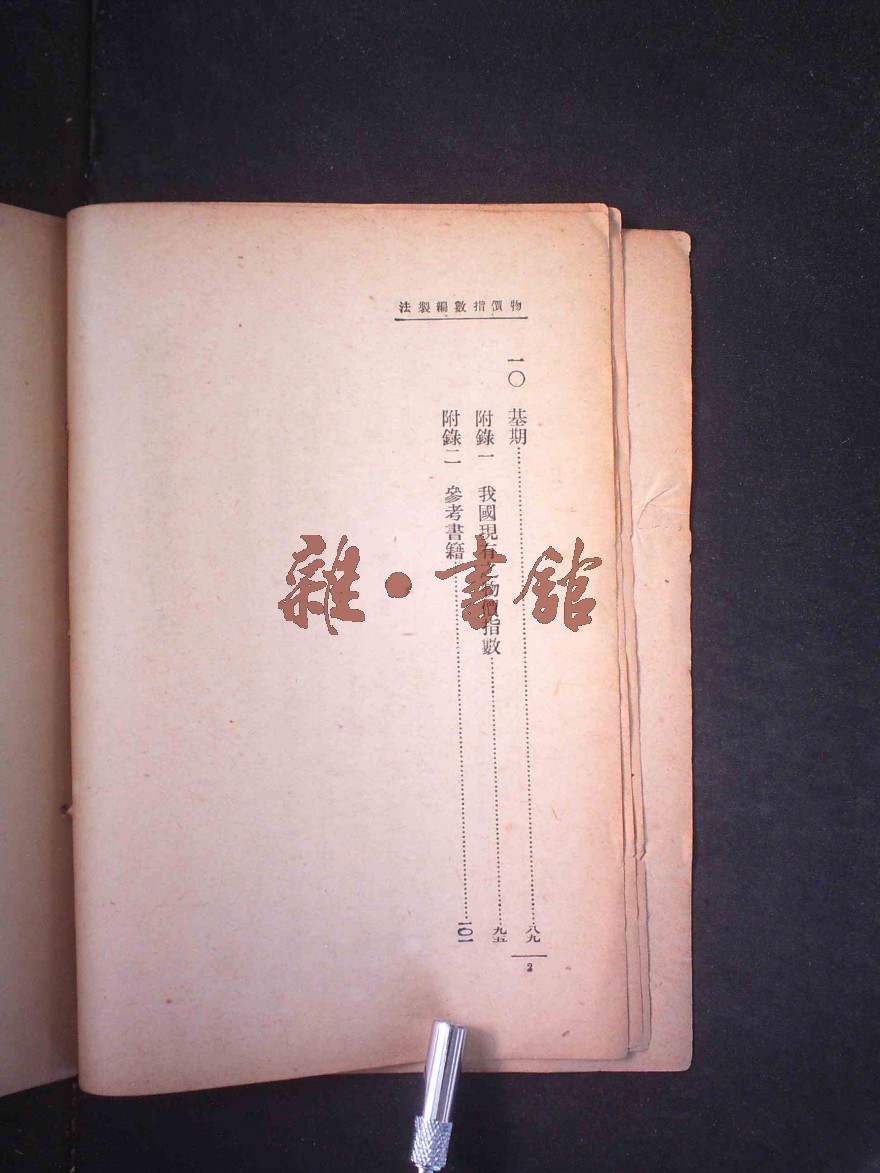 物價指數編製法
一〇 基期……八九
附錄一 我國現有之物價指數……九五
附錄二 參考書籍……一〇一
2
雜·書館